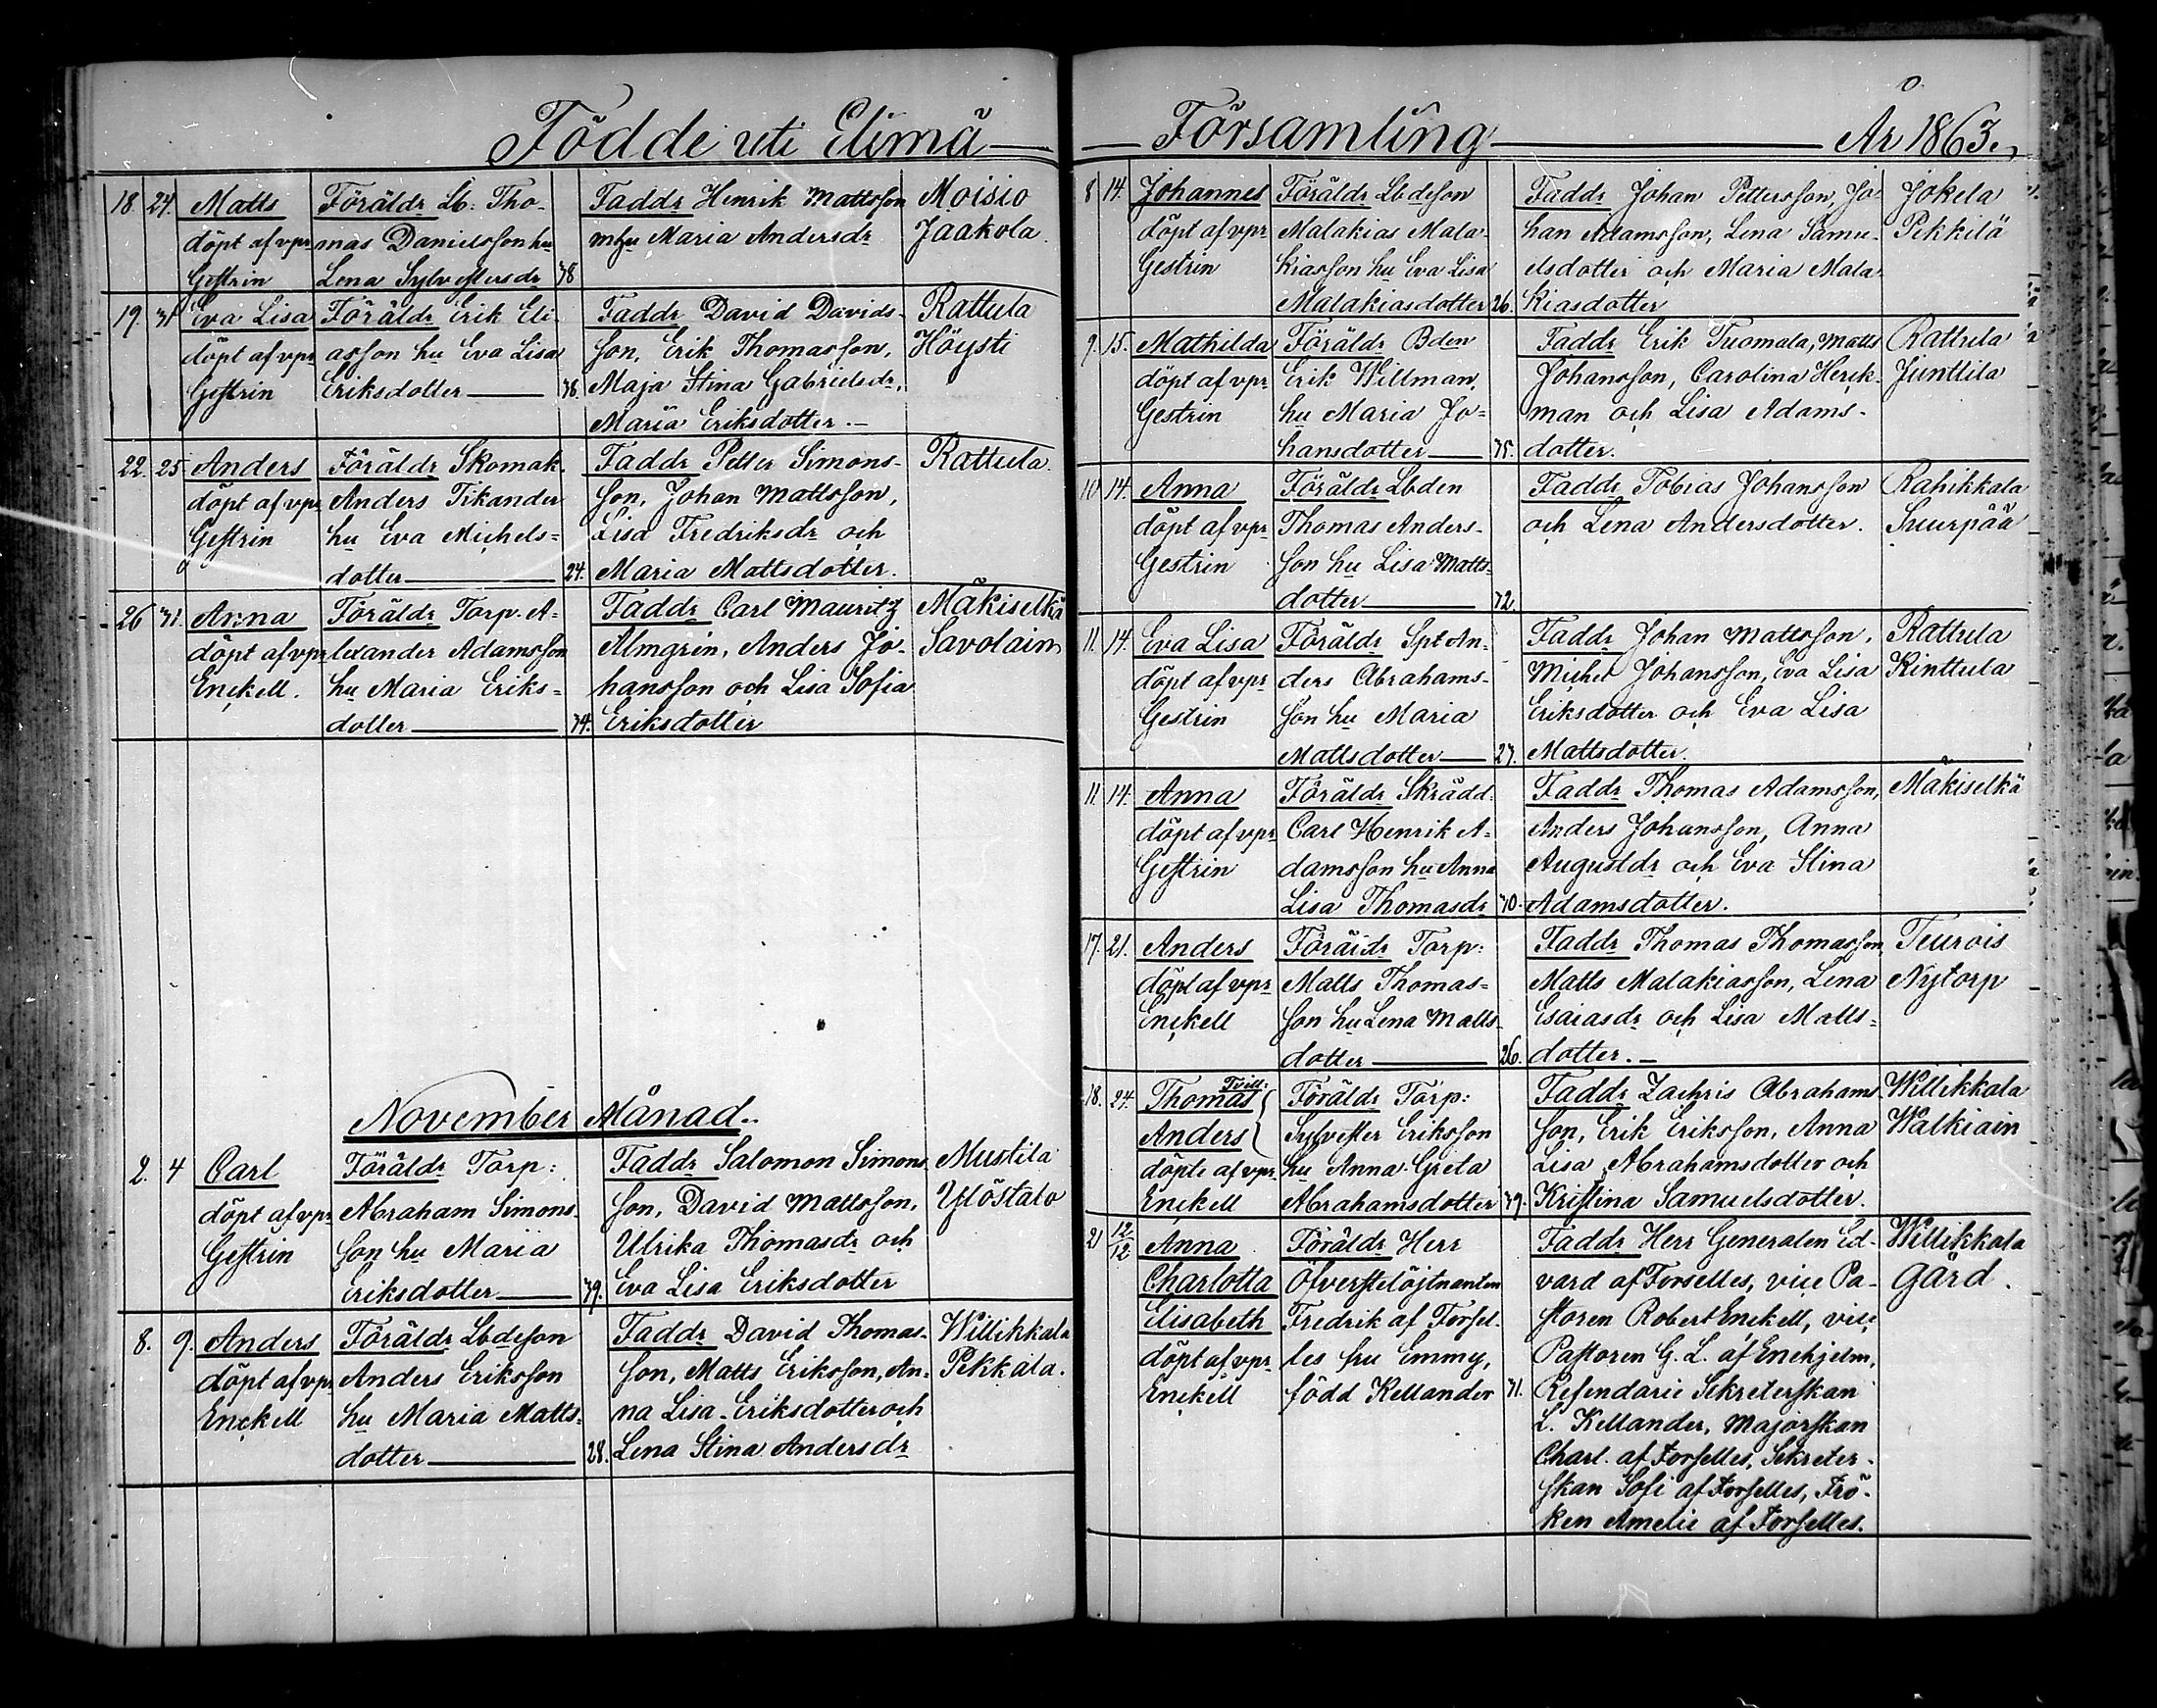 Födde uti Elimä
18. 24. Matts Föräldr Lb: Tho- Faddr Henrik Mattsson Moisio
döpt af vpr mas Danielsson hu mhu Maria Andersdr Jaakola.
Gestrin Lena Sylvestersdr 38
19. 31 Eva Lisa Föräldr Erik Eli- Faddr David Davids- Rattula
döpt af vpr asson hu Eva Lisa son, Erik Thomasson, Höysti
Gestrin Eriksdotter 38. Maja Stina Gabrielsdr,
Maria Eriksdotter.
22. 25 Anders Föräldr Skomak. Faddr Petter Simons- Rattula.
döpt af vpr Anders Tikander son, Johan Mattsson,
Gestrin hu Eva Michels- Lisa Fredriksdr och
dotter 24. Maria Mattsdotter.
26 31 Anna Föräldr Torp. A- Faddr Carl Mauritz Mäkiselkä
döpt af vpr lexander Adamsson Almgrin, Anders Jo- Savolain
Enckell. hu Maria Eriks- hansson och Lisa Sofia
dotter 34. Eriksdotter
November Månad.
2. 4 Carl Föräldr Torp: Faddr Salomon Simons Mustila
döpt af vpr Abraham Simons- son, David Mattsson, Ylöstalo
Gestrin son hu Maria Ulrika Thomasdr och
Eriksdotter 39. Eva Lisa Eriksdotter
8. 9. Anders Föräldr Lbdeson Faddr David Thomas- Willikkala
döpt af vpr Anders Eriksson son, Matts Eriksson, An- Pekkala.
Enckell hu Maria Matts- na Lisa Eriksdotter och
dotter 28. Lena Stina Andersdr
Församling År 1863.
8 14. Johannes Föräldr Lbdeson Faddr Johan Pettersson, Jo- Jokela
döpt af vpr Malakias Mala- han Adamsson, Lena Samu- Pekkilä
Gestrin kiasson hu Eva Lisa elsdotter och Maria Mala-
Malakiasdotter 26. kiasdotter
9. 15. Mathilda Föräldr Bden Faddr Erik Tuomala, Matts Rattula
döpt af vpr Erik Willman, Johansson, Carolina Herck- Junttila
Gestrin hu Maria Jo- man och Lisa Adams-
hansdotter 35. dotter.
10 14. Anna Föräldr Lbden Faddr Tobias Johansson Rahikkala
döpt af vpr Thomas Anders- och Lena Andersdotter. Suurpää
Gestrin son hu Lisa Matts-
dotter 32.
11. 14. Eva Lisa Föräldr Spt An- Faddr Johan Mattsson, Rattula
döpt af vpr ders Abrahams- Michel Johansson, Eva Lisa Kinttula
Gestrin son hu Maria Eriksdotter och Eva Lisa
Mattsdotter 27. Mattsdotter.
11 14. Anna Föräldr Skrädd. Faddr Thomas Adamsson, Mäkiselkä
döpt af vpr Carl Henrik A- Anders Johansson, Anna
Gestrin damsson hu Anna Augustdr och Eva Stina
Lisa Thomasdr 30. Adamsdotter.
17. 21. Anders Föräldr Torp: Faddr Thomas Thomasson, Teurois
döpt af vpr Matts Thomas- Matts Malakiasson, Lena Nytorp
Enckell son hu Lena Matts- Esaiasdr och Lisa Matts-
dotter 26. dotter.
Tvill:
18. 24. Thomas Föräldr Torp: Faddr Zachris Abrahams- Willikkala
Anders Sylvester Eriksson son, Erik Eriksson, Anna Walkiain
döpte af vpr hu Anna Greta Lisa Abrahamsdotter och
Enckell Abrahamsdotter 39. Kristina Samuelsdotter.
21 12/12 Anna Föräldr Herr Faddr Herr Generalen Ed- Willikkala
Charlotta Öfverstelöjtnanten vard af Forselles, vice Pa- gård.
Elisabeth Fredrik af Forsel- storen Robert Enckell, vice
döpt af vpr les fru Emmy, Pastoren G. L. af Enehjelm,
Enckell född Kellander 31. Refendarie Sekreterskan
L. Kellander, Majorskan
Charl. af Forselles, Sekreter-
skan Sofi af Forselles, Frö-
ken Amelie af Forselles.